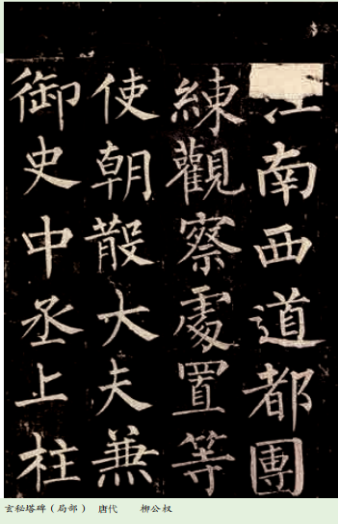 江南西道都團
練觀察處置等
使朝散大夫兼
御史中丞上柱
玄秘塔碑（局部） 唐代 柳公权